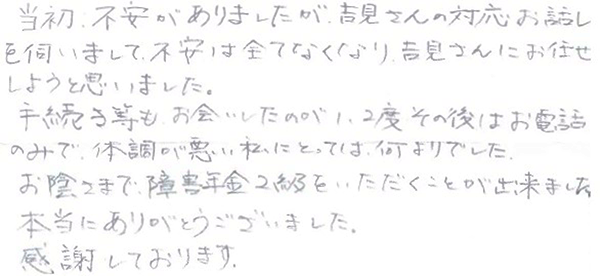 当初、不安がありましたが、吉見さんの対応お話し
を伺いまして、不安は全てなくなり、吉見さんにお任せ
しようと思いました。
手続き等も、お会いしたのが1、2度その後はお電話
のみで、体調が悪い私にとっては、何よりでした。
お陰さまで、障害年金2級をいただくことが出来ました
本当にありがとうございました。
感謝しております。